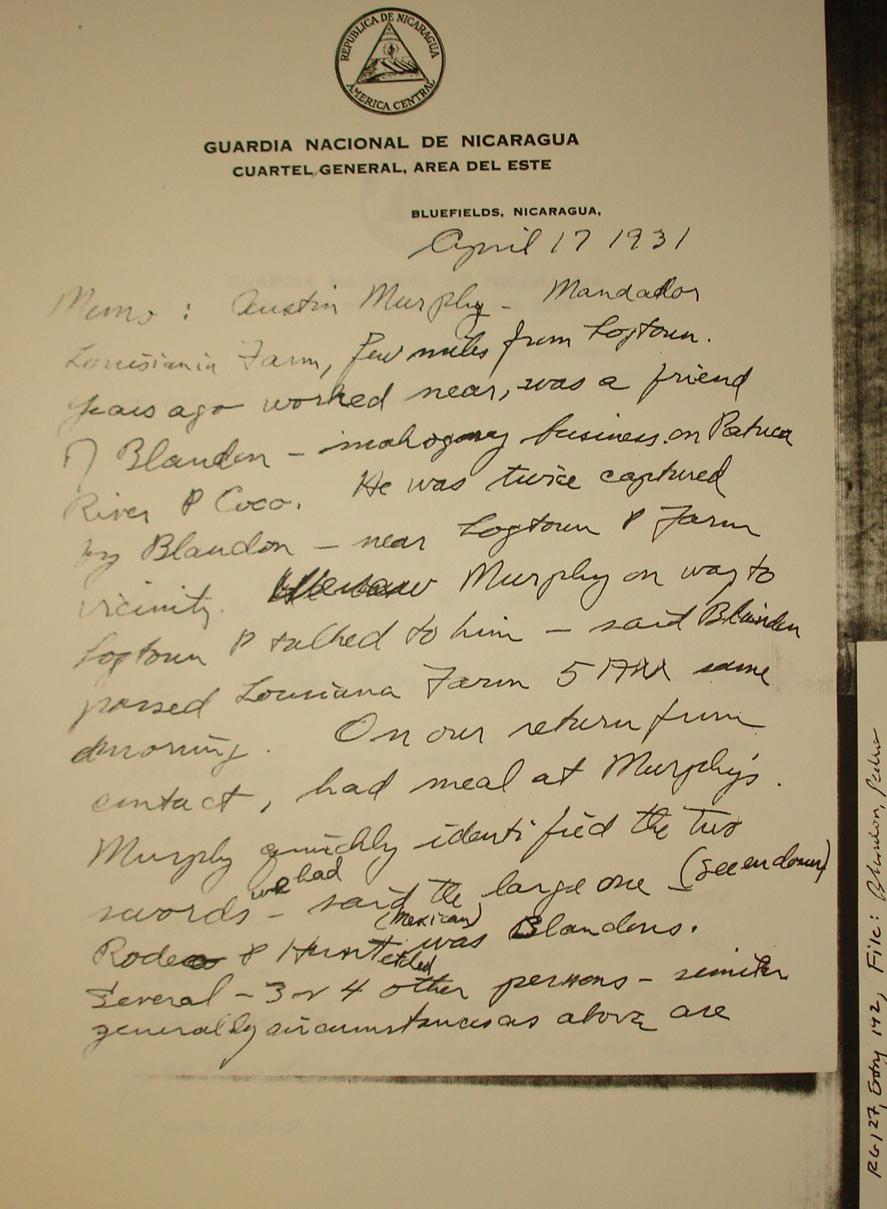 REPUBLICA DE NICARAGUA
AMERICA CENTRAL
GUARDIA NACIONAL DE NICARAGUA
CUARTEL GENERAL, AREA DEL ESTE
BLUEFIELDS, NICARAGUA,
April 17 1931
Memo: Austin Murphy - Mandador
Louisiania Farm, few miles from Logtown.
years ago worked near, was a friend
of Blandon - mahogany business on Patuca
River & Coco. He was twice captured
by Blandon - near Logtown & Farm
vicinity. Murphy on way to
Logtown & talked to him - said Blandon
passed Lousiana Farm 5 AM same
morning. On our return from
contact, had meal at Murphy's.
Murphy quickly identified the two
swords we had - said the large one - (
Rodeo & (Mexican) was Blandons.
Several - 3 or 4 other persons - similar
generally circumstances as above are
RG 127, Entry 142, File: Blandon, Pedro